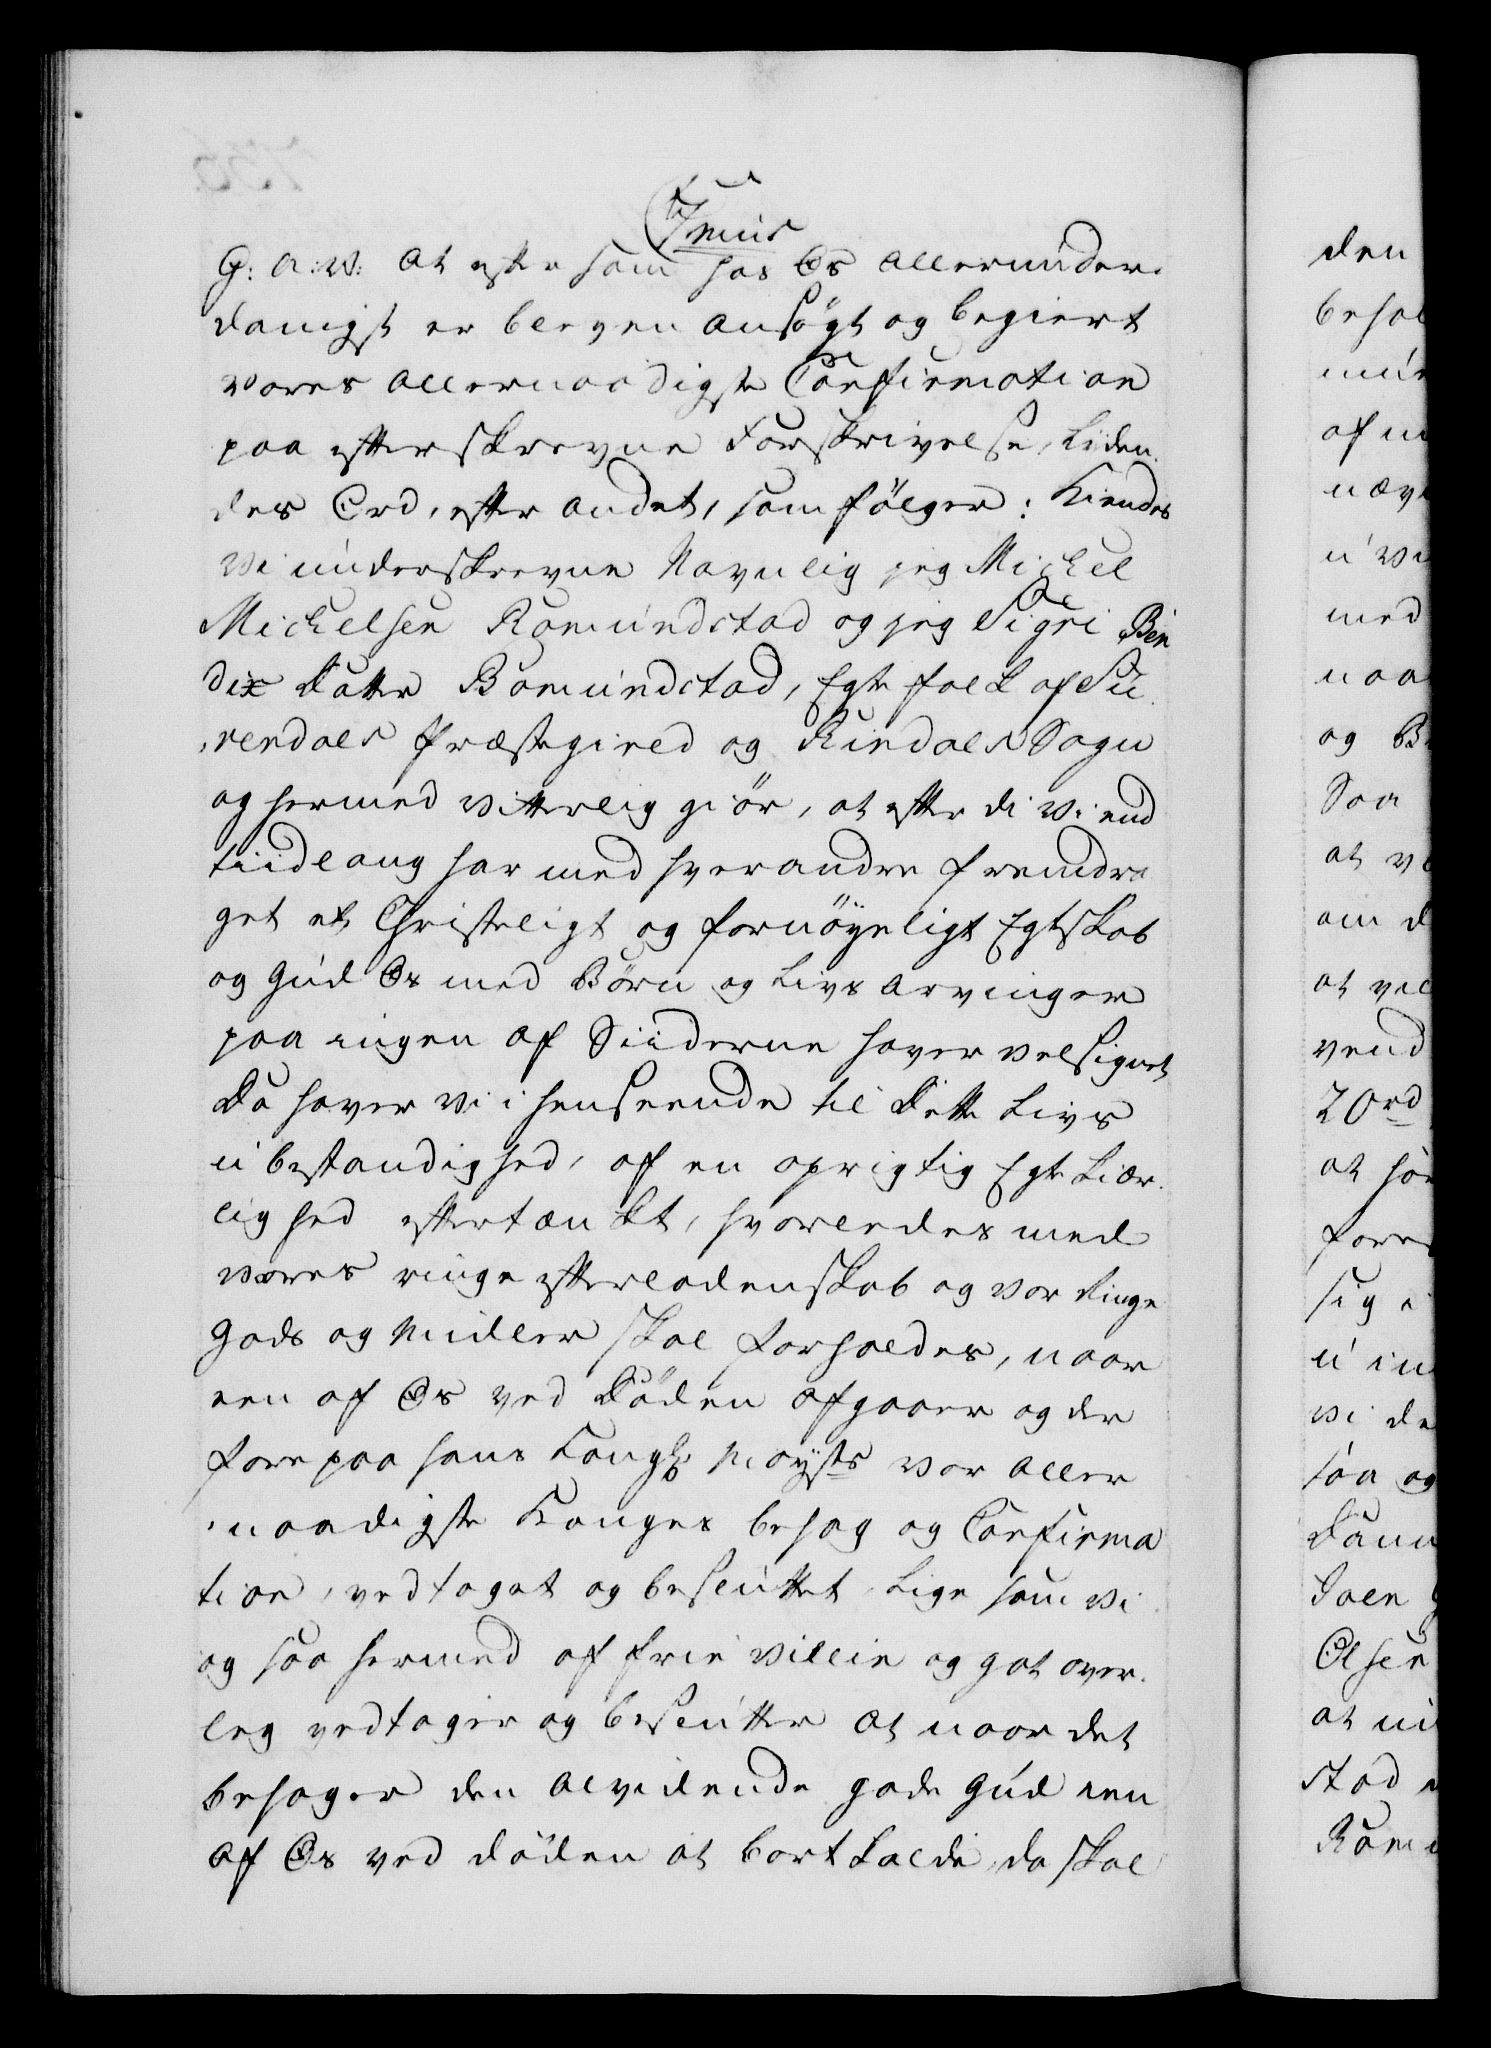 C7mus
G: A: W: At efter som hos Os allerunder-
danigst er bleven ansögt og begiert
Vores allernaadigste Confirmation
paa efterskrevne Forskrivelse, liden-
des Ord, efter andet, som fölger: Kiendes
Vi underskrevne Navnlig jeg Michel
Michelsen Romundstad og jeg Sigri Ben
dix Datter Romundstad, Egte folk af Su-
rendals Præstegield og Rindals Sogn
og hermed Vitterlig giör, at efter di Vi end
tiidlang har med hverandre fremdra
get et Christeligt og fornöyeligt Egteskab
og Gud Os med Börn og Livs Arvinger
paa ingen af Siiderne haver velsignet
Da haver Vi i henseende til Dette Livs
Ubestandighed, af en oprigtig Egte Kiær-
lighed eftertænkt, hvorledes med
Vores ringe efterladenskab og vor Ringe
Gods og Midler skal forholdes, naar
een af Os ved Döden afgaaer og der
fore paa Hans Kongl: Mayts vor Aller
naadigste Konges behag og Confirma
tion, vedtaget og besluttet Lige som Vi
og saa hermed af frie Villie og got over-
leg vedtager og beslutter at naar det
behager den Alvidende gode Gud een
af Os ved döden at bortkalde, da skal
den
20rd
med
og
Saa
Olsen